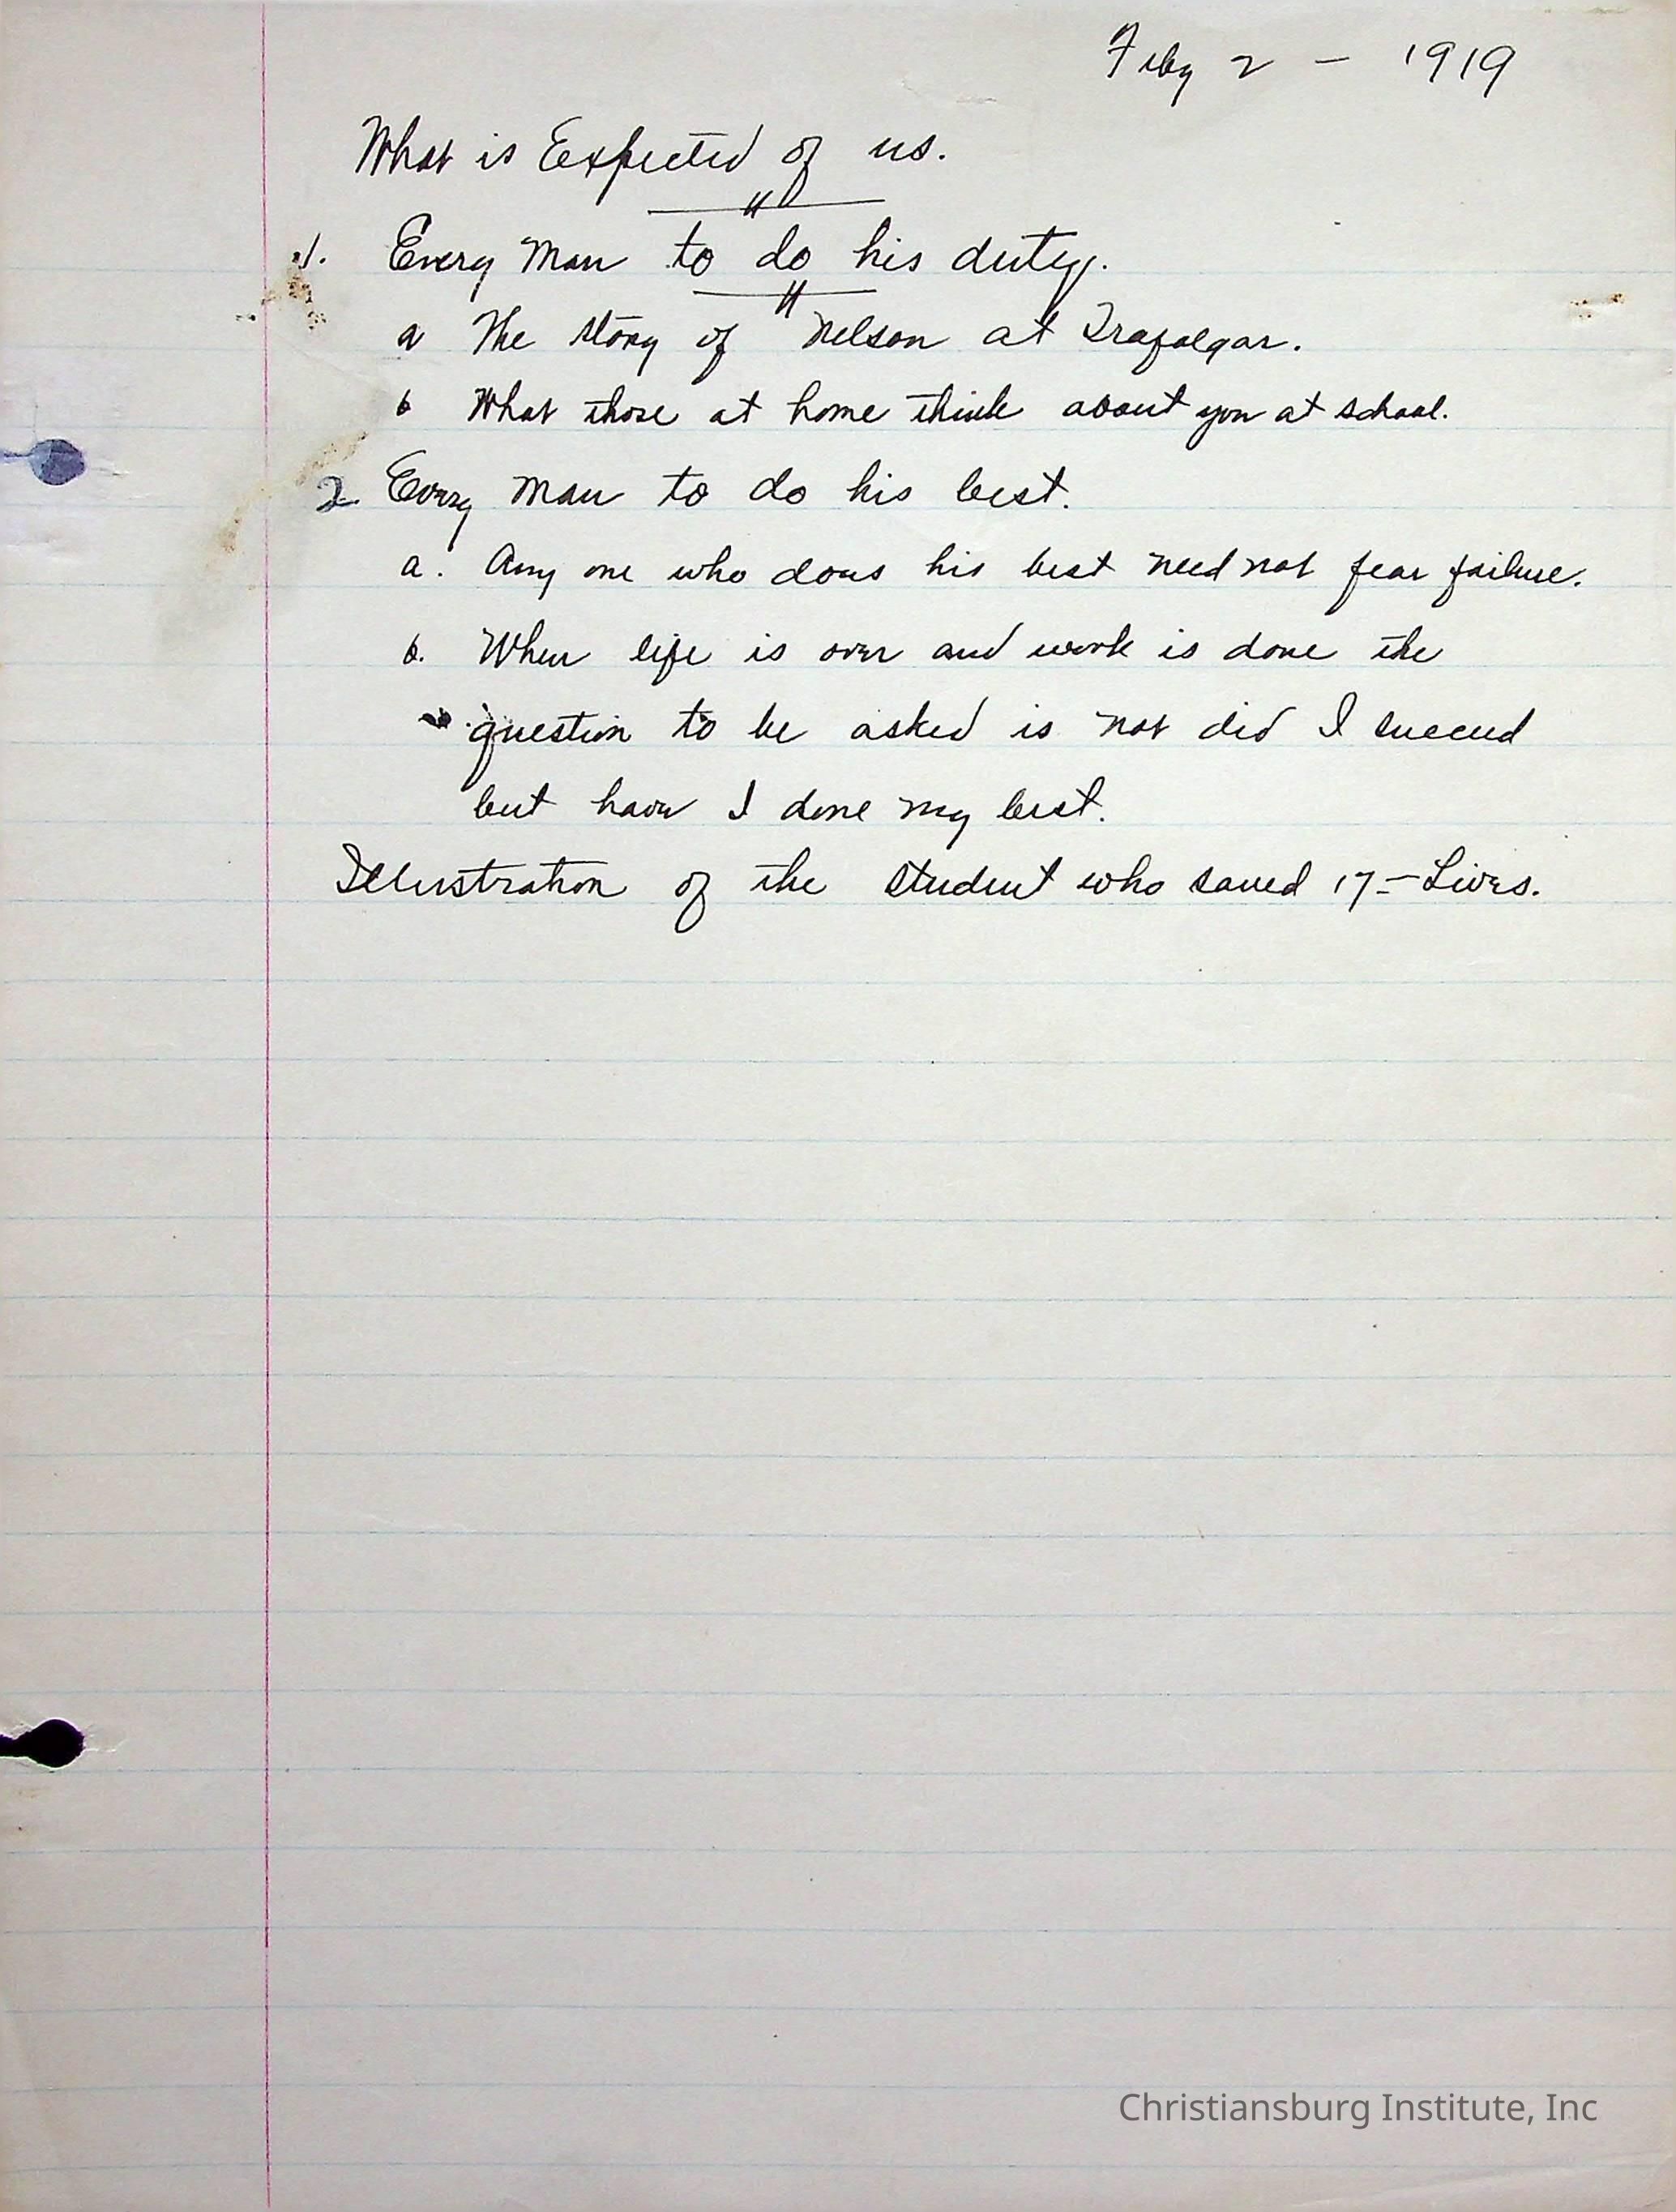 Feby 2 - 1919
What is Expected of us.
1. Every Man to do his duty.
a The story of Nelson at Trafalgar.
b What those at home think about you at school.
2 Every Man to do his best.
a. Any one who does his best need not fear failure.
b. When life is over and work is done the
question to be asked is not did I succeed
but have I done my best.
Illustration of the student who saved 17 - Lives.
Christiansburg Institute, Inc